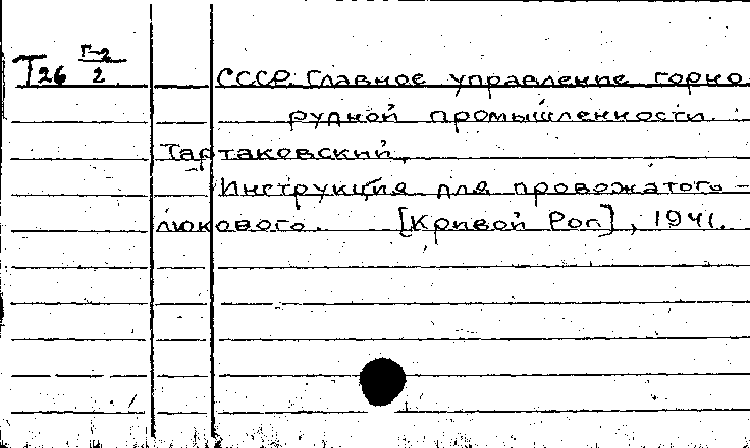 Т26 Г-2/2 СССР. Главное управление горно
рудной промышленности.
Тартаковский,
Инструкция для провожатого-
люкового. [Кривой Рог], 1941.